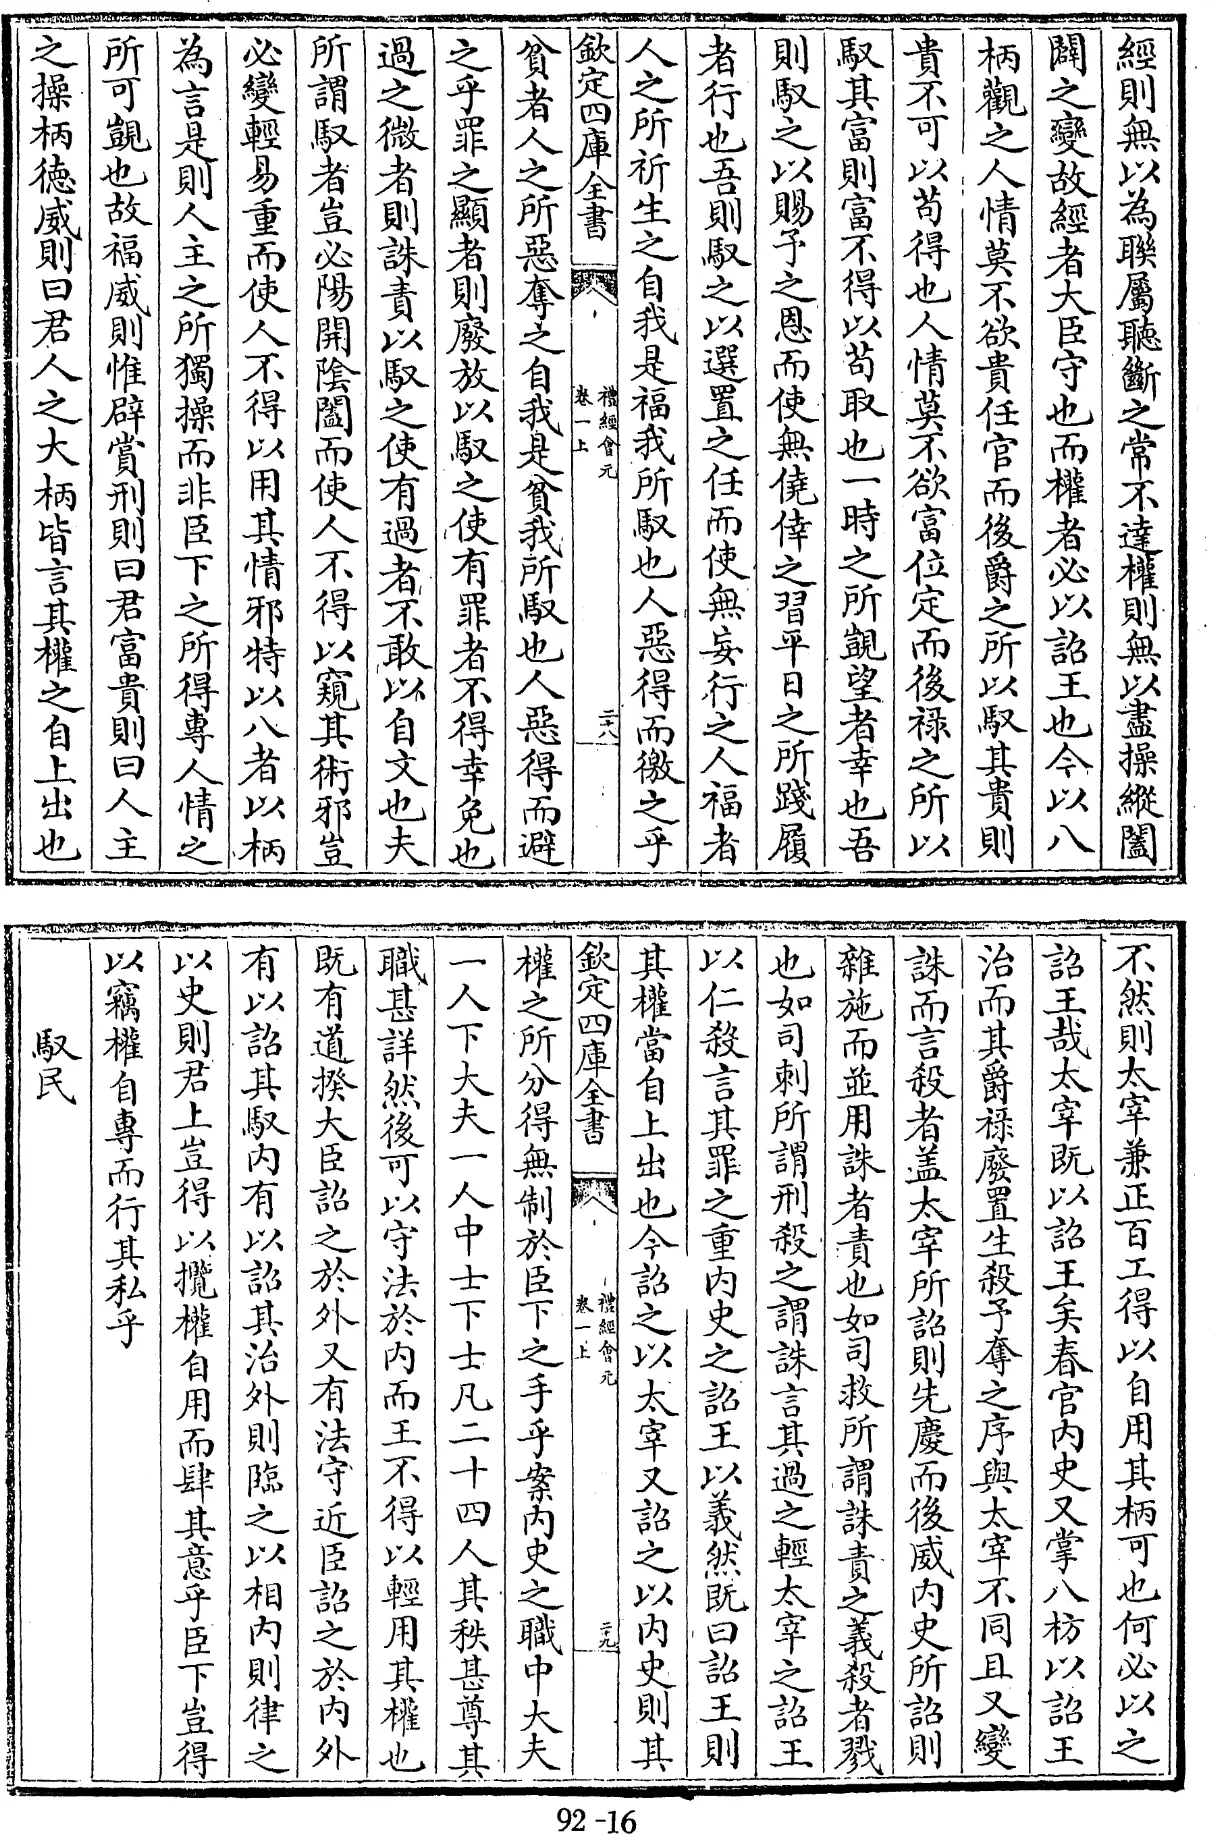 經則無以為聯屬聽斷之常不達權則無以盡操縱闔
闢之變故經者大臣守也而權者必以詔王也今以八
柄觀之人情莫不欲貴任官而後爵之所以馭其貴則
貴不可以苟得也人情莫不欲富位定而後祿之所以
馭其富則富不得以苟取也一時之所覬望者幸也吾
則馭之以賜予之恩而使無僥倖之習平日之所踐履
者行也吾則馭之以選置之任而使無妄行之人福者
人之所祈生之自我是福我所馭也人惡得而徼之乎
欽定四庫全書
禮經會元
卷一上
二十八
貧者人之所惡奪之自我是貧我所馭也人惡得而避
之乎罪之顯者則廢放以馭之使有罪者不得幸免也
過之微者則誅責以馭之使有過者不敢以自文也夫
所謂馭者豈必陽開陰闔而使人不得以窺其術邪豈
必變輕易重而使人不得以用其情邪特以八者以柄
為言是則人主之所獨操而非臣下之所得專人情之
所可覬也故福威則惟辟賞刑則曰君富貴則曰人主
之操柄德威則曰君人之大柄皆言其權之自上出也
不然則太宰兼正百工得以自用其柄可也何必以之
詔王哉太宰既以詔王矣春官內史又掌八枋以詔王
治而其爵祿廢置生殺予奪之序與太宰不同且又變
誅而言殺者盖太宰所詔則先慶而後威內史所詔則
雜施而並用誅者責也如司救所謂誅責之義殺者戮
也如司刺所謂刑殺之謂誅言其過之輕太宰之詔王
以仁殺言其罪之重內史之詔王以義然既曰詔王則
其權當自上出也今詔之以太宰又詔之以內史則其
欽定四庫全書
禮經會元
卷一上
二十九
權之所分得無制於臣下之手乎案內史之職中大夫
一人下大夫一人中士下士凡二十四人其秩甚尊其
職甚詳然後可以守法於內而王不得以輕用其權也
既有道揆大臣詔之於外又有法守近臣詔之於內外
有以詔其馭內有以詔其治外則臨之以相內則律之
以史則君上豈得以攬權自用而肆其意乎臣下豈得
以竊權自專而行其私乎
馭民
92-16